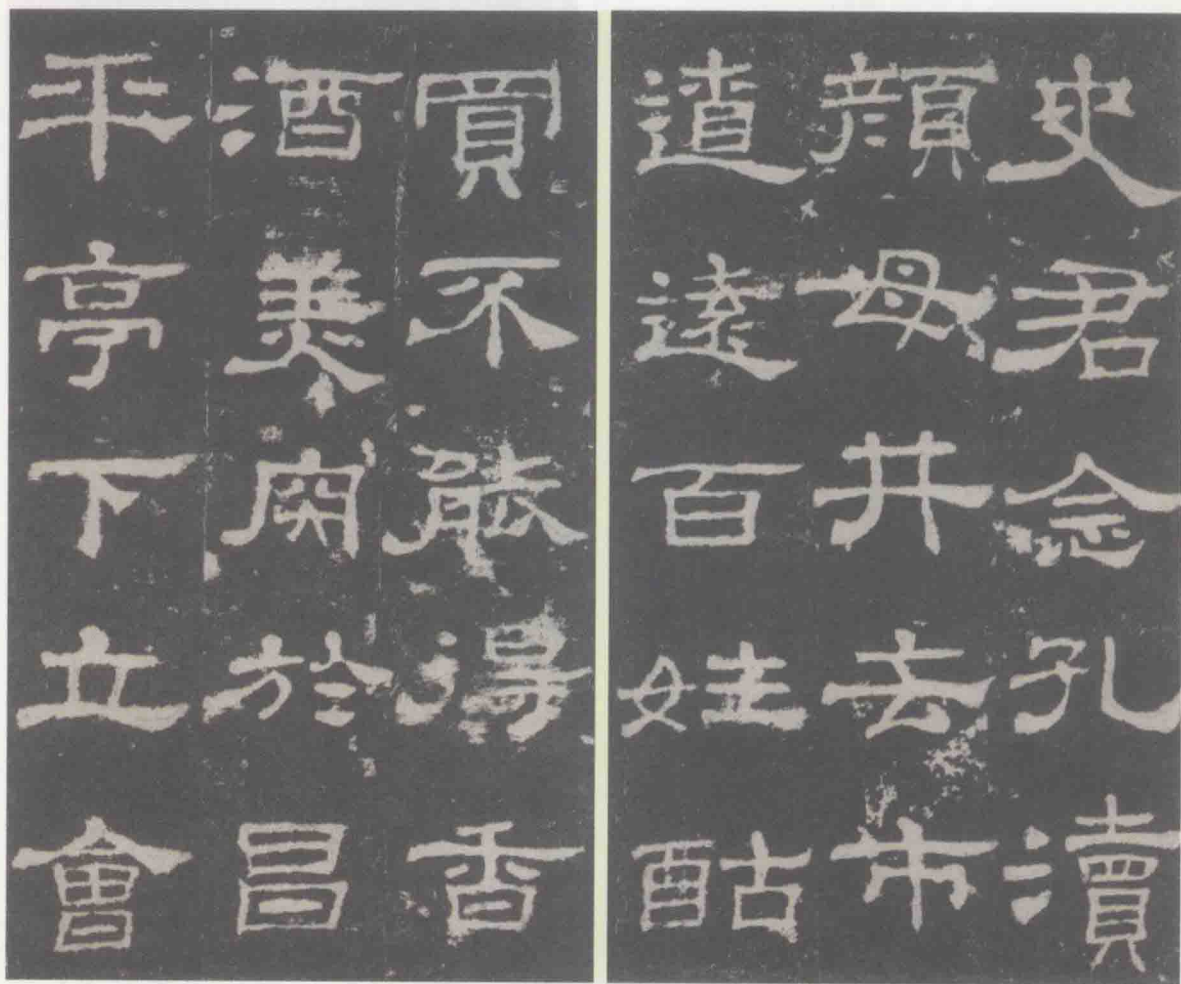 史君念孔瀆
顏母井去市
遼遠百姓酤
買不能得香
酒美肉於昌
平亭下立會